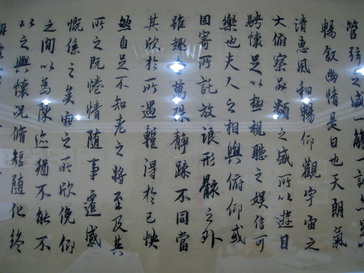 管弦之盛
暢敘幽情是日也天朗氣
清惠風和暢仰觀宇宙之
大俯察品類之盛所以遊目
騁懷足以極視聽之娛信可
樂也夫人之相與俯仰或
因寄所託放浪形骸之外
雖趣舍萬殊靜躁不同當
其欣於所遇蹔得於己快
然自足不知老之將至及其
所之既惓情隨事遷感
慨係之矣向之所欣俛仰
之間以為陳迹猶不能不
以之興懷況脩短隨化終